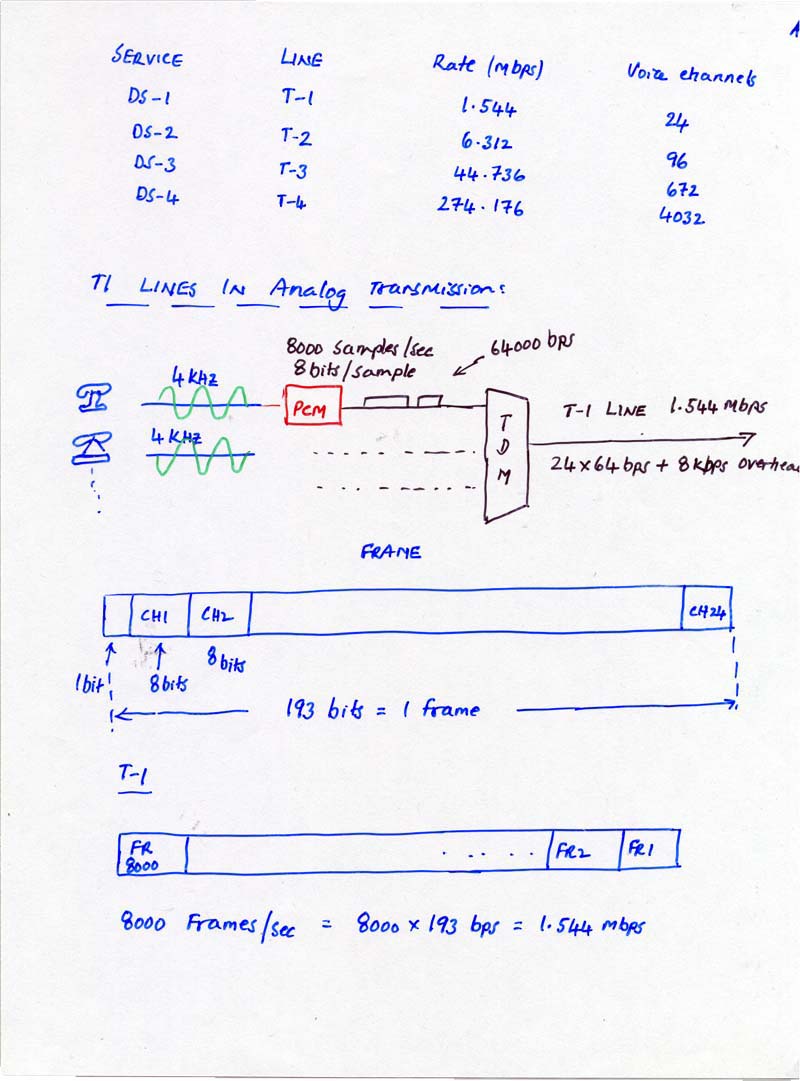 A
SERVICE LINE Rate (mbps) Voice channels
DS-1 T-1 1.544 24
DS-2 T-2 6.312 96
DS-3 T-3 44.736 672
DS-4 T-4 274.176 4032
T1 LINES IN Analog Transmission:
8000 Samples/sec 64000 bps
4 KHZ 8 bits/sample
PCM T-1 LINE 1.544 mbps
TDM
4 KHZ
24 x 64 bps + 8 kbps overhea
FRAME
CH1 CH2 CH24
1 bit 8 bits 8 bits
193 bits = 1 frame
T-1
FR 8000 . . . . . FR2 FR1
8000 Frames/sec = 8000 x 193 bps = 1.544 mbps